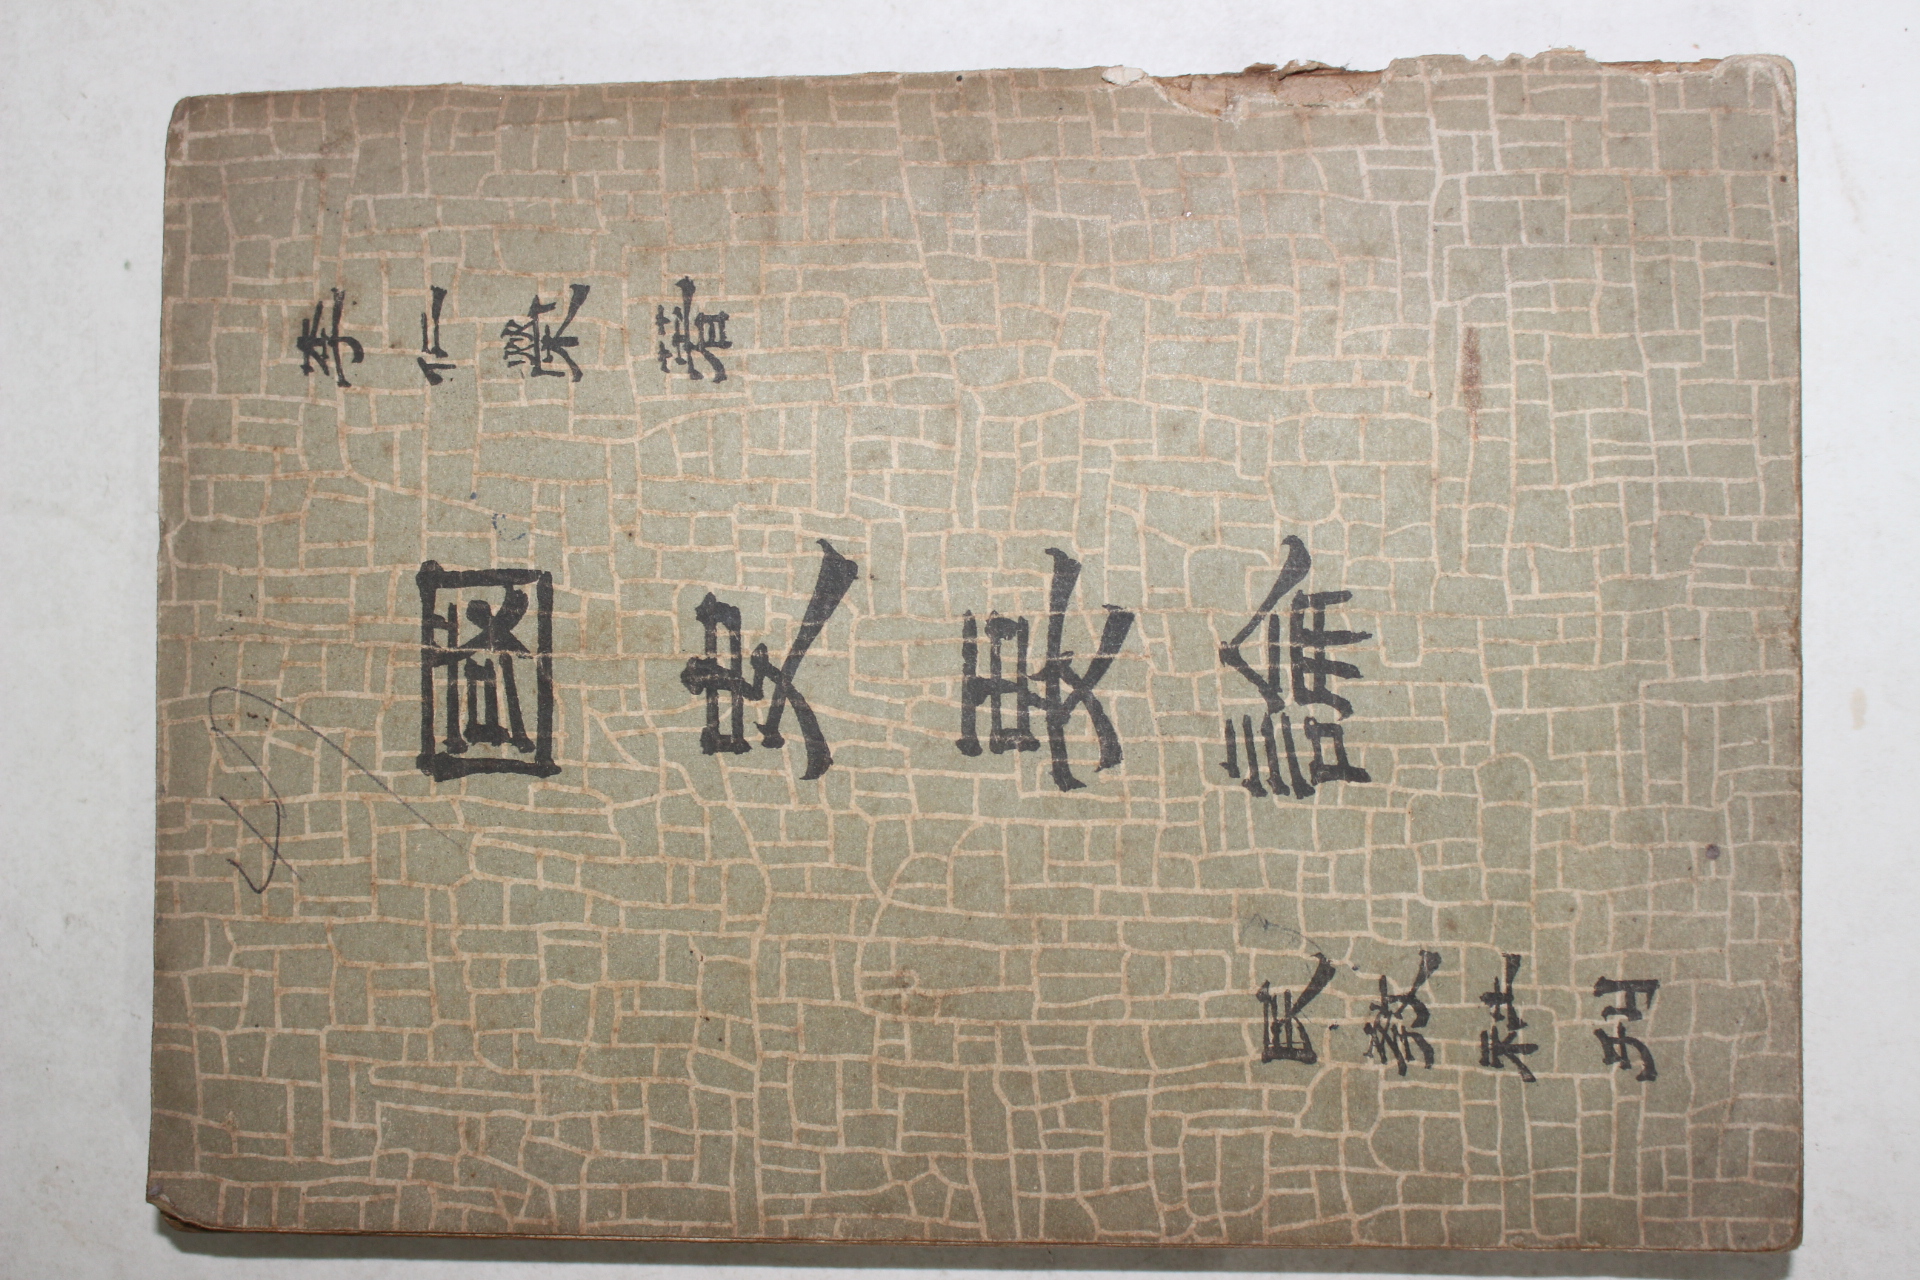 李仁榮著
國史要論
民敎社刊